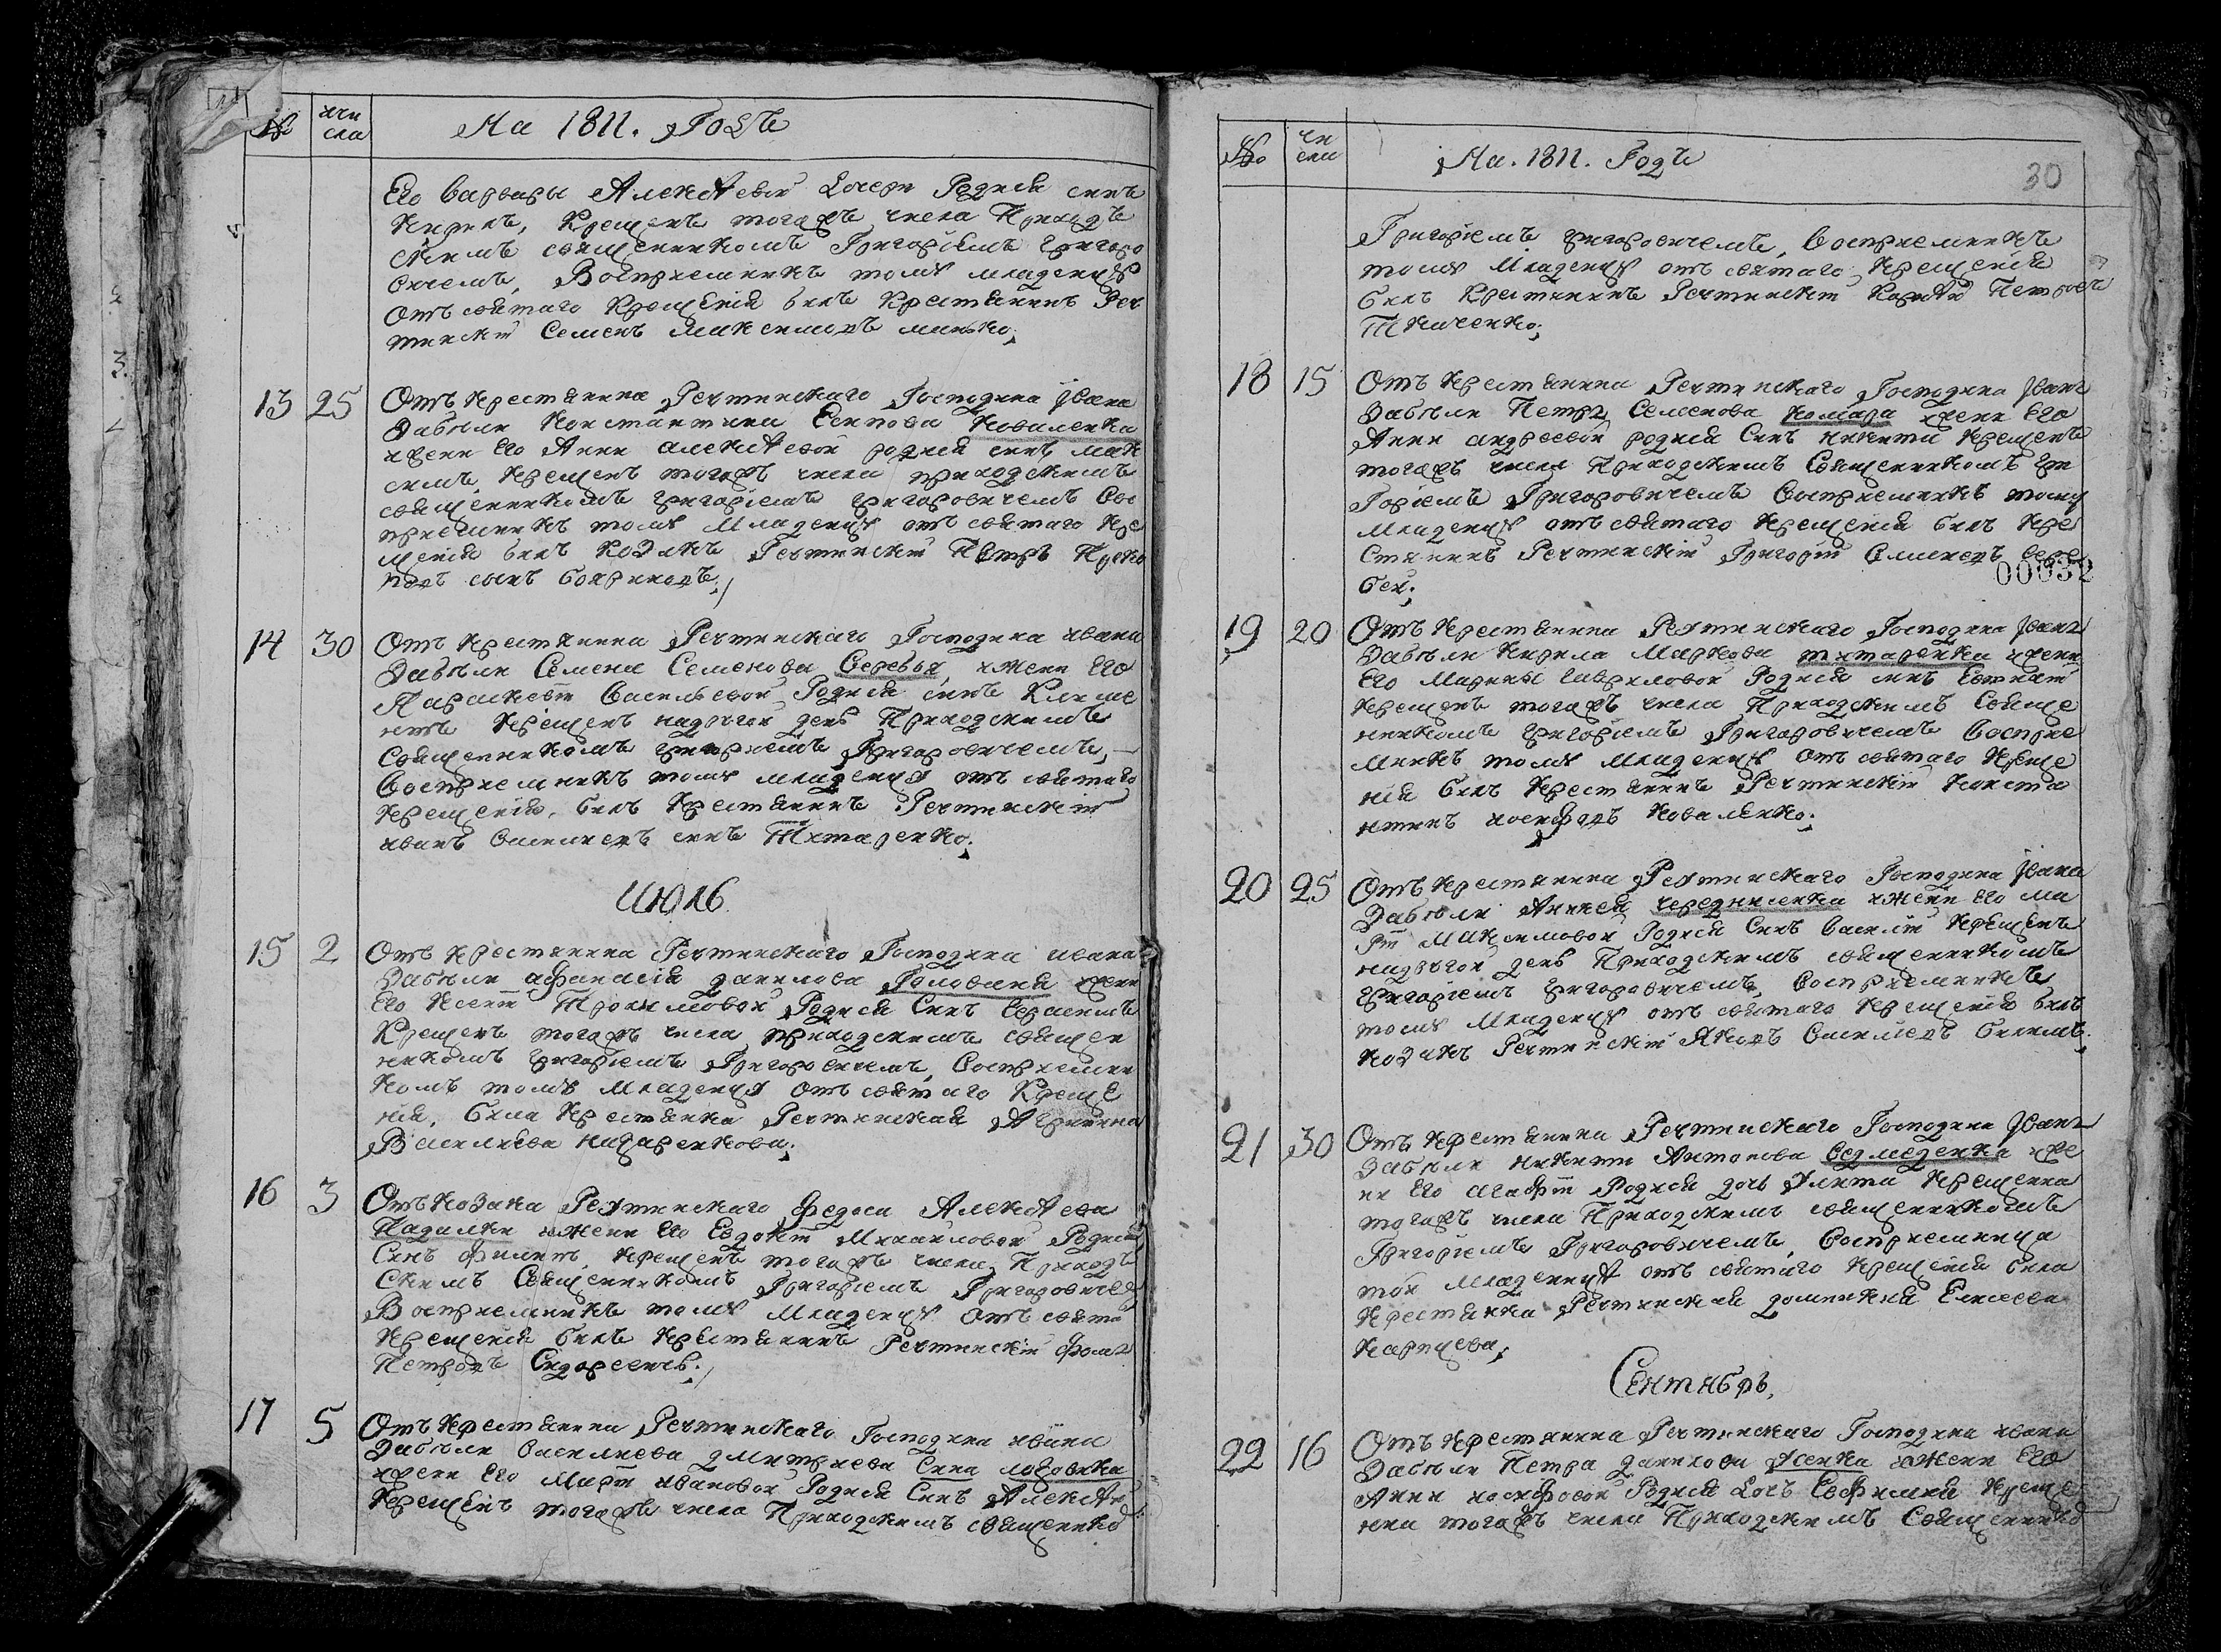 № чи
сла На 1811. Годъ
Его Варвары Алексѣевой Дочери Родися синъ
Кирилъ, Крещенъ тогожъ числа Приход
скимъ священникомъ Григоріемъ Григоро
вичемъ, Восприемникъ тому младенцу
отъ святаго Крещенія билъ Крестянинъ Реч
тинскій Семенъ Максимовъ
13 25 Отъ крестянина Речтинскаго Господина Ивана
Забѣли Константина Коваленка
жени Его Анни алексѣевой родися синъ мак
симъ, крещенъ тогожъ числа приходскимъ
священникомъ григоріемъ григоровичемъ Вос
приемникъ тому Младенцу отъ святаго кре
щенія билъ козакъ Речтинскій Петръ Проко
повъ синъ
14 30 Отъ крестянина Речтинскаго Господина ивана
Забѣли Семена Семенова жени Его
Параскевіи Василиевой Родися синъ Климе
нтъ крещенъ надругой день Приходскимъ
Священникомъ григоріемъ Григоровичемъ,
Восприемникъ тому младенцу отъ святаго
крещенія, билъ крестянинъ Речтинскій
иванъ Василиевъ синъ Титаренко;
ИЮЛЬ
15 2 Отъ крестянина Речтинскаго Господина ивана
Забѣли афанасія данилова Головани жени
Его Ксеніи Трохимовой Родися Синъ Герасимъ
Крещенъ тогожъ числа приходскимъ священ
никомъ григоріемъ Григоровичемъ, Восприемни
комъ тому Младенцу отъ святаго Креще
нія, била крестянка Речтинская Агрипина
Василиева назаренкова;
16 3 Отъ козака Речтинскаго федоси Алексѣева
Падалки жени Его Евдокіи Михаиловой Родися
Синъ филипъ, крещенъ тогожъ числа Приход
скимъ Священникомъ Григоріемъ Григоровиче
Восприемникъ тому Младенцу отъ свята
крещенія билъ крестянинъ Речтинскій фома
Петровъ
17 5 Отъ крестянина Речтинскаго Господина ивана
Забѣли Василиева дмитриева Сина лозовика
жени Его Марѣи ивановой Родися Синъ Алексѣй
Крещенъ тогожъ числа Приходскимъ священнико
№ чи
сла На. 1811. Годъ 30
Григоріемъ григоровичемъ, Восприемникъ
тому Младенцу отъ святаго Крещенія
билъ Крестянинъ Речтинскій Корнѣй Петровъ
Ткаченко;
18 15 Отъ крестянина Речтинскаго Господина Ивана
Забѣли Петра Семенова комара жени Его
Анни андреевой родися Синъ никита крещенъ
тогожъ числа Приходскимъ Священникомъ гри
горіемъ Григоровичемъ Восприемникъ тому
Младенцу отъ святаго крещенія билъ кре
стянинъ Речтинскій Григорій Семеновъ
00032
19 20 Отъ крестянина Речтинскаго Господина Ивана
Забѣли Кирила Маркова титаренка жени
Его Марини Гавриловой Родися синъ Евтихій
крещенъ тогожъ числа Приходскимъ Священ
никомъ григоріемъ Григоровичемъ Восприе
мникъ тому Младенцу отъ святаго креще
нія билъ крестянинъ Речтинскій Конста
нтинъ иосифовъ коваленко;
20 25 Отъ крестянина Речтинскаго Господина Ивана
Забѣли чередниченка жени Его Ма
ріи Максимовой Родися Синъ Василій крещенъ
надругой день Приходскимъ священникомъ
григоріемъ григоровичемъ, Восприемникъ
тому Младенцу отъ святаго крещенія билъ
козакъ Речтинскій Яковъ Василиевъ
21 30 Отъ крестянина Речтинскаго Господина Ивана
Забѣли никити Антонова Седмеденка же
ни Его агафіи Родися дочъ Улита крещенна
тогожъ числа Приходскимъ священникомъ
Григоріемъ Григоровичемъ, Восприемница
той Младеницѣ отъ святаго крещенія била
крестянка Речтинская домникия Елисеева
карпцева;
Сентябръ,
22 16 Отъ крестянина Речтинскаго Господина ивана
Забѣли Петра данилова Усенка жени Его
Анни иосифовой Родися Дочъ Евфимия креще
нна тогожъ числа Приходскимъ Священнико